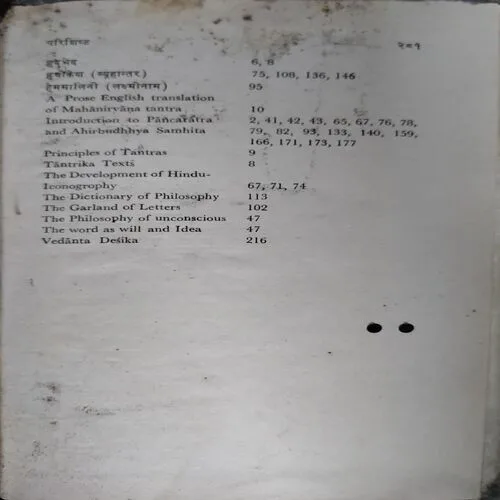 परिशिष्ट २८१
हृद्भेद 6, 8
हृषीकेश (व्यूहान्तर) 75, 108, 136, 146
हेममालिनी (लक्ष्मीनाम) 95
A Prose English translation
of Mahānirvāṇa tantra 10
Introduction to Pāñcarātra 2, 41, 42, 43, 65, 67, 76, 78,
and Ahirbudhhya Samhita 79, 82, 93, 133, 140, 159,
166, 171, 173, 177
Principles of Tantras 9
Tāntrika Texts 8
The Development of Hindu-
Iconography 67, 71, 74
The Dictionary of Philosophy 113
The Garland of Letters 102
The Philosophy of unconscious 47
The word as will and Idea 47
Vedānta Deśika 216